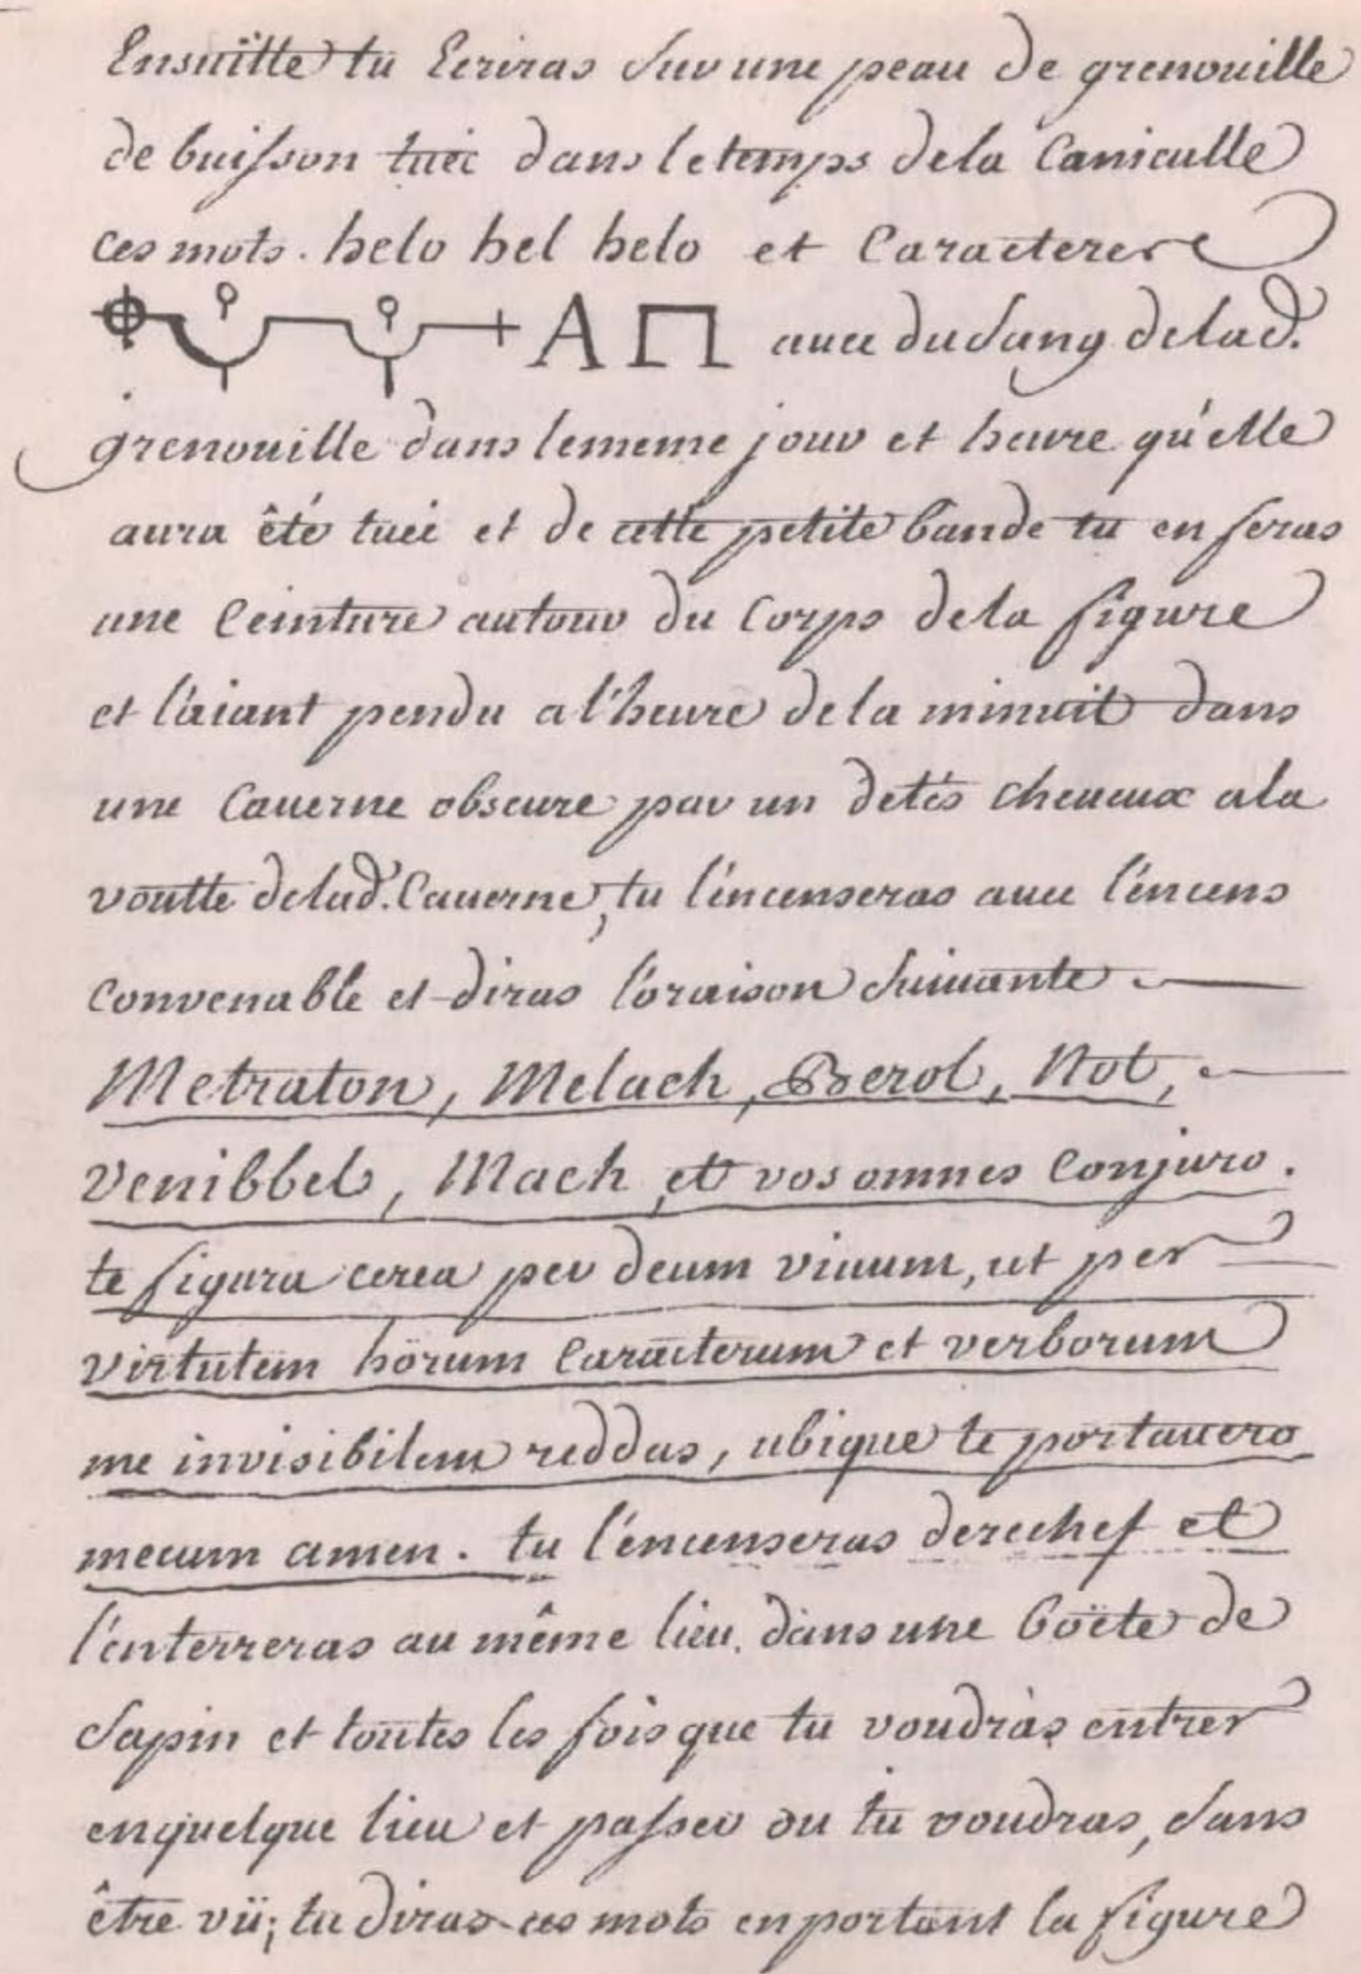 Ensuïtte tu Ecriras sur une peau de grenouille
de buisson tuéé dans le temps de la Caniculle
ces mots. helo hel helo et Caractere
A Π auec du sang de lad.
grenouille dans le meme jour et heure qu'elle
aura êté tuéé et de cette petite bande tu en feras
une Ceinture autour du Corps de la figure
et l'aiant pendu a l'heure de la minuit dans
une Cauerne obscure par un de tés cheueux a la
voutte de lad. Cauerne, tu l'incenseras auec l'encens
convenable et diras l'oraison suiuante
Metraton, Melach, Berol, Not,
Venibbel, Mach, et vos omnes Conjuro.
te figura cerea per deum viuum, ut per
virtutem horum Caracterum et verborum
me invisibilem reddas, ubique te portauero
mecum amen. tu l'encenseras derechef et
l'enterreras au même lieu, dans une boëte de
Sapin et toutes les fois que tu voudras entrer
en quelque lieu et passer ou tu voudras, sans
être vü; tu diras ces mots en portant la figure